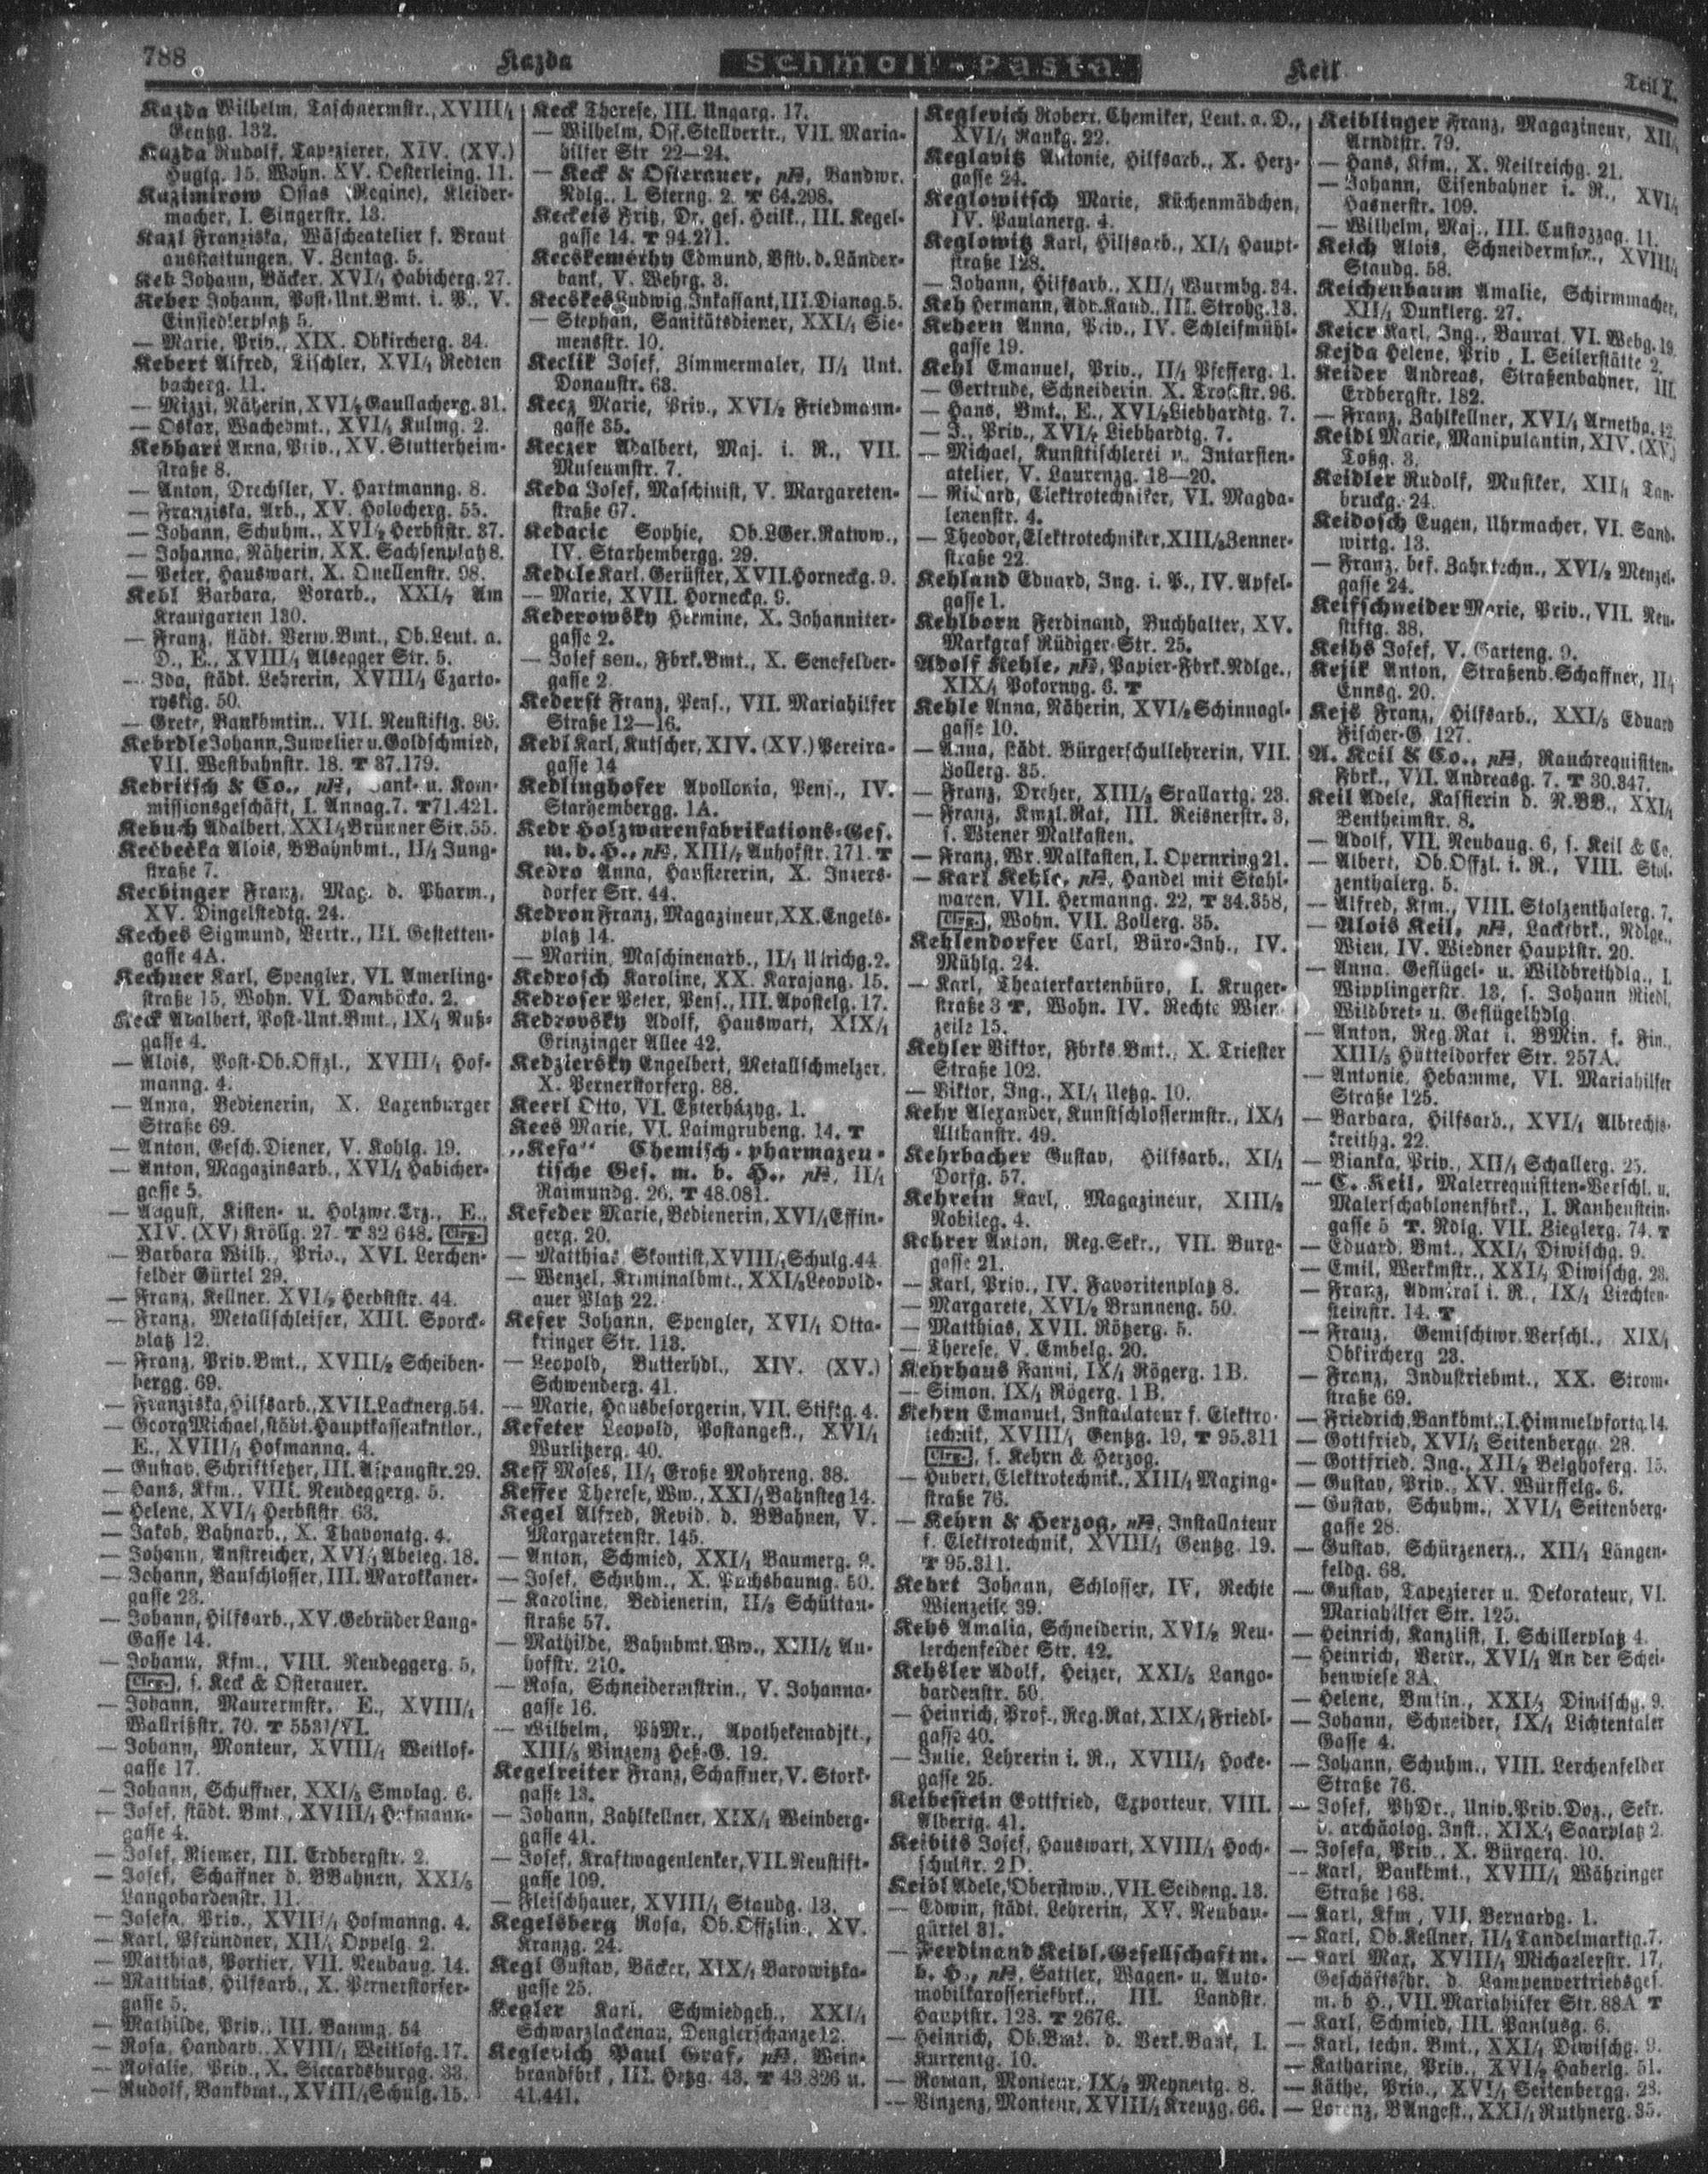 788
Kazda
Schmoll-Pasta
Keil
Teil I.
Kazda Wilhelm, Taschnermstr., XVIII/1
Gentzg. 132.
Kazda Rudolf, Tapezierer, XIV. (XV.)
Huglg. 15, Wohn. XV. Oesterleing. 11.
Kazimirow Ossas (Regine), Kleider-
macher, I. Singerstr. 13.
Kazl Franziska, Wäscheatelier f. Braut
ausstattungen, V. Zentag. 5.
Keb Johann, Bäcker, XVI/1 Habicherg. 27.
Keber Johann, Post-Unt.Bmt. i. P., V.
Einsiedlerplatz 5.
— Marie, Priv., XIX. Obkircherg. 34.
Kebert Alfred, Tischler, XVI/1 Redten
bacherg. 11.
— Mizzi, Näherin, XVI/2 Gaullacherg. 31.
— Oskar, Wachebmt., XVI/1 Kulmg. 2.
Kebhart Anna, Priv., XV. Stutterheim-
straße 8.
— Anton, Drechsler, V. Hartmanng. 8.
— Franziska, Arb., XV. Holocherg. 55.
— Johann, Schuhm., XVI/2 Herbststr. 37.
— Johanna, Näherin, XX. Sachsenplatz 8.
— Peter, Hauswart, X. Quellenstr. 98.
Kebl Barbara, Vorarb., XXI/7 Am
Krautgarten 130.
— Franz, städt. Verw.Bmt., Ob.Leut. a.
D., E., XVIII/1 Alsegger Str. 5.
— Ida, städt. Lehrerin, XVIII/1 Czarto-
ryskig. 50.
— Grete, Bankbmtin., VII. Neustiftg. 86.
Kebrdle Johann, Juwelier u. Goldschmied,
VII. Westbahnstr. 18. T 37.179.
Kebritsch & Co., pH, Bank- u. Kom-
missionsgeschäft, I. Annag. 7. T 71.421.
Kebuch Adalbert, XXI/1 Brünner Str. 55.
Kecbecka Alois, BBahnbmt., II/1 Jung-
straße 7.
Kechinger Franz, Mag. d. Pharm.,
XV. Dingelstedtg. 24.
Keches Sigmund, Vertr., III. Gestetten-
gasse 4A.
Kechner Karl, Spengler, VI. Amerling-
straße 15, Wohn. VI. Damböckg. 2.
Keck Adalbert, Post-Unt.Bmt., IX/1 Nuß-
gasse 4.
— Alois, Post-Ob.Offzl., XVIII/1 Hof-
manng. 4.
— Anna, Bedienerin, X. Laxenburger
Straße 69.
— Anton, Gesch.Diener, V. Kohlg. 19.
— Anton, Magazinsarb., XVI/1 Habicher-
gasse 5.
— August, Kisten- u. Holzwr.Erz., E.,
XIV. (XV) Kröllg. 27. T 32 648. Clrg.
— Barbara Wilh., Priv., XVI. Lerchen-
felder Gürtel 29.
— Franz, Kellner, XVI/2 Herbststr. 44.
— Franz, Metallschleifer, XIII. Sporck-
platz 12.
— Franz, Priv.Bmt., XVIII/2 Scheiben-
bergg. 69.
— Franziska, Hilfsarb., XVII. Lacknerg. 54.
— Georg Michael, städt. Hauptkassenkntlor.,
E., XVIII/1 Hofmanng. 4.
— Gustav, Schriftsetzer, III. Aspangstr. 29.
— Hans, Kfm., VIII. Neudeggerg. 5.
— Helene, XVI/1 Herbststr. 63.
— Jakob, Bahnarb., X. Thavonatg. 4.
— Johann, Anstreicher, XVI/1 Abeleg. 18.
— Johann, Bauschlosser, III. Marokkaner-
gasse 23.
— Johann, Hilfsarb., XV. Gebrüder Lang-
Gasse 14.
— Johann, Kfm., VIII. Neudeggerg. 5,
Clrg., s. Keck & Osterauer.
— Johann, Maurermstr., E., XVIII/1
Wallrißstr. 70. T 5531/VI.
— Johann, Monteur, XVIII/1 Weitlof-
gasse 17.
— Johann, Schaffner, XXI/3 Smolag. 6.
— Josef, städt. Bmt., XVIII/1 Hofmann-
gasse 4.
— Josef, Riemer, III. Erdbergstr. 2.
— Josef, Schaffner d. BBahnen, XXI/5
Langobardenstr. 11.
— Josefa, Priv., XVIII/1 Hofmanng. 4.
— Karl, Pfründner, XII/1 Oppelg. 2.
— Matthias, Portier, VII. Neubaug. 14.
— Matthias, Hilfsarb., X. Pernerstorfer-
gasse 5.
— Mathilde, Priv., III. Baumg. 54
— Rosa, Handarb., XVIII/1 Weitlofg. 17.
— Rosalie, Priv., X. Siccardsburgg. 33.
— Rudolf, Bankbmt., XVIII/1 Schulg. 15.
Keck Therese, III. Ungarg. 17.
— Wilhelm, Off.Stellvertr., VII. Maria-
hilfer Str. 22—24.
— Keck & Osterauer, pH, Bandwr.
Ndlg., I. Sterng. 2. T 64.298.
Keckeis Fritz, Dr. ges. Heilk., III. Kegel-
gasse 14. T 94.271.
Kecskeméthy Edmund, Bstb. d. Länder-
bank, V. Wehrg. 3.
Kecskes Ludwig, Inkassant, III. Dianag. 5.
— Stephan, Sanitätsdiener, XXI/1 Sie-
mensstr. 10.
Keclik Josef, Zimmermaler, II/1 Unt.
Donaustr. 63.
Kecz Marie, Priv., XVI/2 Friedmann-
gasse 35.
Keczer Adalbert, Maj. i. R., VII.
Museumstr. 7.
Keda Josef, Maschinist, V. Margareten-
straße 67.
Kedacic Sophie, Ob.LGer.Ratww.,
IV. Starhembergg. 29.
Kedele Karl, Gerüster, XVII. Horneckg. 9.
— Marie, XVII. Horneckg. 9.
Kederowsky Hermine, X. Johanniter-
gasse 2.
— Josef sen., Fbrk.Bmt., X. Senefelder-
gasse 2.
Kederst Franz, Pens., VII. Mariahilfer
Straße 12—16.
Kedl Karl, Kutscher, XIV. (XV.) Pereira-
gasse 14
Kedlinghofer Apollonia, Pens., IV.
Starhembergg. 1A.
Kedr Holzwarenfabrikations-Ges.
m. b. H., pH, XIII/7 Auhofstr. 171. T
Kedro Anna, Hausiererin, X. Inzers-
dorfer Str. 44.
Kedron Franz, Magazineur, XX. Engels-
platz 14.
— Martin, Maschinenarb., II/1 Ulrichg. 2.
Kedrosch Karoline, XX. Karajang. 15.
Kedroser Peter, Pens., III. Apostelg. 17.
Kedrovsky Adolf, Hauswart, XIX/1
Grinzinger Allee 42.
Kedziersky Engelbert, Metallschmelzer,
X. Pernerstorferg. 88.
Keerl Otto, VI. Eßterházyg. 1.
Kees Marie, VI. Laimgrubeng. 14. T
„Kefa“ Chemisch-pharmazeu-
tische Ges. m. b. H., pH, II/1
Raimundg. 26. T 48.081.
Kefeder Marie, Bedienerin, XVI/1 Effin-
gerg. 20.
— Matthias, Skontist, XVIII/1 Schulg. 44.
— Wenzel, Kriminalbmt., XXI/5 Leopold-
auer Platz 22.
Kefer Johann, Spengler, XVI/1 Otta-
kringer Str. 113.
— Leopold, Butterhdl., XIV. (XV.)
Schwenderg. 41.
— Marie, Hausbesorgerin, VII. Stiftg. 4.
Kefeter Leopold, Postangest., XVI/1
Wurlitzerg. 40.
Keff Moses, II/1 Große Mohreng. 38.
Keffer Therese, Ww., XXI/1 Bahnsteg 14.
Kegel Alfred, Revid. d. BBahnen, V.
Margaretenstr. 145.
— Anton, Schmied, XXI/1 Baumerg. 9.
— Josef, Schuhm., X. Puchsbaumg. 50.
— Karoline, Bedienerin, II/3 Schüttau-
straße 57.
— Mathilde, Bahnbmt.Ww., XIII/2 Au-
hofstr. 210.
— Rosa, Schneidermstrin., V. Johanna-
gasse 16.
— Wilhelm, PhMr., Apothekenadjkt.,
XIII/5 Vinzenz Heß-G. 19.
Kegelreiter Franz, Schaffner, V. Stork-
gasse 13.
— Johann, Zahlkellner, XIX/1 Weinberg-
gasse 41.
— Josef, Kraftwagenlenker, VII. Neustift-
gasse 109.
— Fleischhauer, XVIII/1 Staudg. 13.
Kegelsberg Rosa, Ob.Offzlin., XV.
Kranzg. 24.
Kegl Gustav, Bäcker, XIX/1 Barowitzka-
gasse 25.
Kegler Karl, Schmiedgeh., XXI/1
Schwarzlackenau, Denglerschanze 12.
Keglevich Paul Graf, pH, Wein-
brandfbrk., III. Hetzg. 43. T 43.826 u.
41.441.
Keglevich Robert, Chemiker, Leut. a. D.,
XVI/1 Rankg. 22.
Keglavitz Antonie, Hilfsarb., X. Herz-
gasse 24.
Keglowitsch Marie, Küchenmädchen,
IV. Paulanerg. 4.
Keglowitz Karl, Hilfsarb., XI/1 Haupt-
straße 128.
— Johann, Hilfsarb., XII/1 Wurmbg. 34.
Keh Hermann, Adv.Kand., III. Strohg. 13.
Kehern Anna, Priv., IV. Schleifmühl-
gasse 19.
Kehl Emanuel, Priv., II/1 Pfefferg. 1.
— Gertrude, Schneiderin, X. Troststr. 96.
— Hans, Bmt., E., XVI/2 Liebhardtg. 7.
— J., Priv., XVI/2 Liebhardtg. 7.
— Michael, Kunsttischlerei u. Intarsien-
atelier, V. Laurenzg. 18—20.
— Richard, Elektrotechniker, VI. Magda-
lenenstr. 4.
— Theodor, Elektrotechniker, XIII/5 Zenner-
straße 22.
Kehland Eduard, Ing. i. P., IV. Apfel-
gasse 1.
Kehlborn Ferdinand, Buchhalter, XV.
Markgraf Rüdiger-Str. 25.
Adolf Kehle, pH, Papier-Fbrk.Ndlge.,
XIX/1 Pokornyg. 6. T
Kehle Anna, Näherin, XVI/2 Schinnagl-
gasse 10.
— Anna, städt. Bürgerschullehrerin, VII.
Zollerg. 35.
— Franz, Dreher, XIII/3 Srallartg. 23.
— Franz, Kmzl.Rat, III. Reisnerstr. 3,
s. Wiener Malkasten.
— Franz, Wr. Malkasten, I. Opernring 21.
— Karl Kehle, pH, Handel mit Stahl-
waren, VII. Hermanng. 22, T 34.358,
Clrg., Wohn. VII. Zollerg. 35.
Kehlendorfer Carl, Büro-Inh., IV.
Mühlg. 24.
— Karl, Theaterkartenbüro, I. Kruger-
straße 3 T, Wohn. IV. Rechte Wien-
zeile 15.
Kehler Viktor, Fbrks.Bmt., X. Triester
Straße 102.
— Viktor, Ing., XI/1 Uetzg. 10.
Kehr Alexander, Kunstschlossermstr., IX/1
Althanstr. 49.
Kehrbacher Gustav, Hilfsarb., XI/1
Dorfg. 57.
Kehrein Karl, Magazineur, XIII/2
Nobileg. 4.
Kehrer Anton, Reg.Sekr., VII. Burg-
gasse 21.
— Karl, Priv., IV. Favoritenplatz 8.
— Margarete, XVI/2 Brunneng. 50.
— Matthias, XVII. Rötzerg. 5.
— Therese, V. Embelg. 20.
Kehrhaus Fanni, IX/1 Rögerg. 1 B.
— Simon, IX/1 Rögerg. 1 B.
Kehrn Emanuel, Installateur f. Elektro-
technik, XVIII/1 Gentzg. 19, T 95.311
Clrg., s. Kehrn & Herzog.
— Hubert, Elektrotechnik., XIII/1 Maxing-
straße 76.
— Kehrn & Herzog, pH, Installateur
f. Elektrotechnik, XVIII/1 Gentzg. 19.
T 95.311.
Kehrt Johann, Schlosser, IV. Rechte
Wienzeile 39.
Kehs Amalia, Schneiderin, XVI/2 Neu-
lerchenfelder Str. 42.
Kehsler Adolf, Heizer, XXI/5 Lango-
bardenstr. 50.
— Heinrich, Prof., Reg.Rat, XIX/1 Friedl-
gasse 40.
— Julie, Lehrerin i. R., XVIII/1 Hocke-
gasse 25.
Keibestein Gottfried, Exporteur, VIII.
Alberig. 41.
Keibits Josef, Hauswart, XVIII/1 Hoch-
schulstr. 2 D.
Keibl Adele, Oberstww., VII. Seideng. 13.
— Edwin, städt. Lehrerin, XV. Neubau-
gürtel 31.
— Ferdinand Keibl, Gesellschaft m.
b. H., pH, Sattler, Wagen- u. Auto-
mobilkarosseriefbrk., III. Landstr.
Hauptstr. 123. T 2676.
— Heinrich, Ob.Bmt. d. Verk.Bank, I.
Kurrentg. 10.
— Roman, Monteur, IX/2 Meynertg. 8.
— Vinzenz, Monteur, XVIII/1 Kreuzg. 66.
Keiblinger Franz, Magazineur, XII/1
Arndtstr. 79.
— Hans, Kfm., X. Neilreichg. 21.
— Johann, Eisenbahner i. R., XVI/1
Hasnerstr. 109.
— Wilhelm, Maj., III. Custozzag. 11.
Keich Alois, Schneidermstr., XVIII/1
Staudg. 58.
Keichenbaum Amalie, Schirmmacher,
XII/1 Dunklerg. 27.
Keier Karl, Ing., Baurat, VI. Webg. 19.
Kejda Helene, Priv., I. Seilerstätte 2.
Keider Andreas, Straßenbahner, III.
Erdbergstr. 182.
— Franz, Zahlkellner, XVI/1 Arnethg. 42.
Keidl Marie, Manipulantin, XIV. (XV.)
Toßg. 3.
Keidler Rudolf, Musiker, XII/1 Tan-
bruckg. 24.
Keidosch Eugen, Uhrmacher, VI. Sand-
wirtg. 13.
— Franz, bef. Zahntechn., XVI/2 Menzel-
gasse 24.
Keifschneider Marie, Priv., VII. Neu-
stiftg. 38.
Keihs Josef, V. Garteng. 9.
Kejik Anton, Straßenb.Schaffner, II/1
Ennsg. 20.
Kejs Franz, Hilfsarb., XXI/5 Eduard
Fischer-G. 127.
A. Keil & Co., pH, Rauchrequisiten-
Fbrk., VII. Andreasg. 7. T 30.347.
Keil Adele, Kassierin d. N.BB., XXI/1
Bentheimstr. 8.
— Adolf, VII. Neubaug. 6, s. Keil & Co.
— Albert, Ob.Offzl. i. R., VIII. Stol-
zenthalerg. 5.
— Alfred, Kfm., VIII. Stolzenthalerg. 7.
— Alois Keil, pH, Lackfbrk., Ndlge.,
Wien, IV. Wiedner Hauptstr. 20.
— Anna, Geflügel- u. Wildbrethdlg., I.
Wipplingerstr. 13, s. Johann Riedl,
Wildbret- u. Geflügelhdlg.
— Anton, Reg.Rat i. BMin. f. Fin.,
XIII/5 Hütteldorfer Str. 257A.
— Antonie, Hebamme, VI. Mariahilfer
Straße 125.
— Barbara, Hilfsarb., XVI/1 Albrechts-
kreithg. 22.
— Bianka, Priv., XII/1 Schallerg. 25.
— C. Keil, Malerrequisiten-Verschl. u.
Malerschablonenfbrk., I. Rauhenstein-
gasse 5 T. Ndlg. VII. Zieglerg. 74. T
— Eduard, Bmt., XXI/1 Diwischg. 9.
— Emil, Werkmstr., XXI/1 Diwischg. 23.
— Franz, Admiral i. R., IX/1 Liechten-
steinstr. 14. T
— Franz, Gemischtwr.Verschl., XIX/1
Obkircherg 23.
— Franz, Industriebmt., XX. Strom-
straße 69.
— Friedrich, Bankbmt., I. Himmelpfortg. 14.
— Gottfried, XVI/1 Seitenbergg. 28.
— Gottfried, Ing., XII/2 Belghoferg. 15.
— Gustav, Priv., XV. Würffelg. 6.
— Gustav, Schuhm., XVI/1 Seitenberg-
gasse 28.
— Gustav, Schürzenerz., XII/1 Längen-
feldg. 68.
— Gustav, Tapezierer u. Dekorateur, VI.
Mariahilfer Str. 125.
— Heinrich, Kanzlist, I. Schillerplatz 4.
— Heinrich, Vertr., XVI/1 An der Schei-
benwiese 3A.
— Helene, Bmtin., XXI/1 Diwischg. 9.
— Johann, Schneider, IX/1 Lichtentaler
Gasse 4.
— Johann, Schuhm., VIII. Lerchenfelder
Straße 76.
— Josef, PhDr., Univ.Priv.Doz., Sekr.
d. archäolog. Inst., XIX/1 Saarplatz 2.
— Josefa, Priv., X. Bürgerg. 10.
— Karl, Bankbmt., XVIII/1 Währinger
Straße 168.
— Karl, Kfm., VII. Bernardg. 1.
— Karl, Ob.Kellner, II/1 Tandelmarktg. 7.
— Karl Max, XVIII/1 Michaelerstr. 17,
Geschäftsfdr. d. Lampenvertriebsges.
m. b. H., VII. Mariahilfer Str. 88A. T
— Karl, Schmied, III. Paulusg. 6.
— Karl, techn. Bmt., XXI/1 Diwischg. 9.
— Katharine, Priv., XVI/2 Haberlg. 51.
— Käthe, Priv., XVI/1 Seitenbergg. 28.
— Lorenz, BAngest., XXI/1 Ruthnerg. 35.